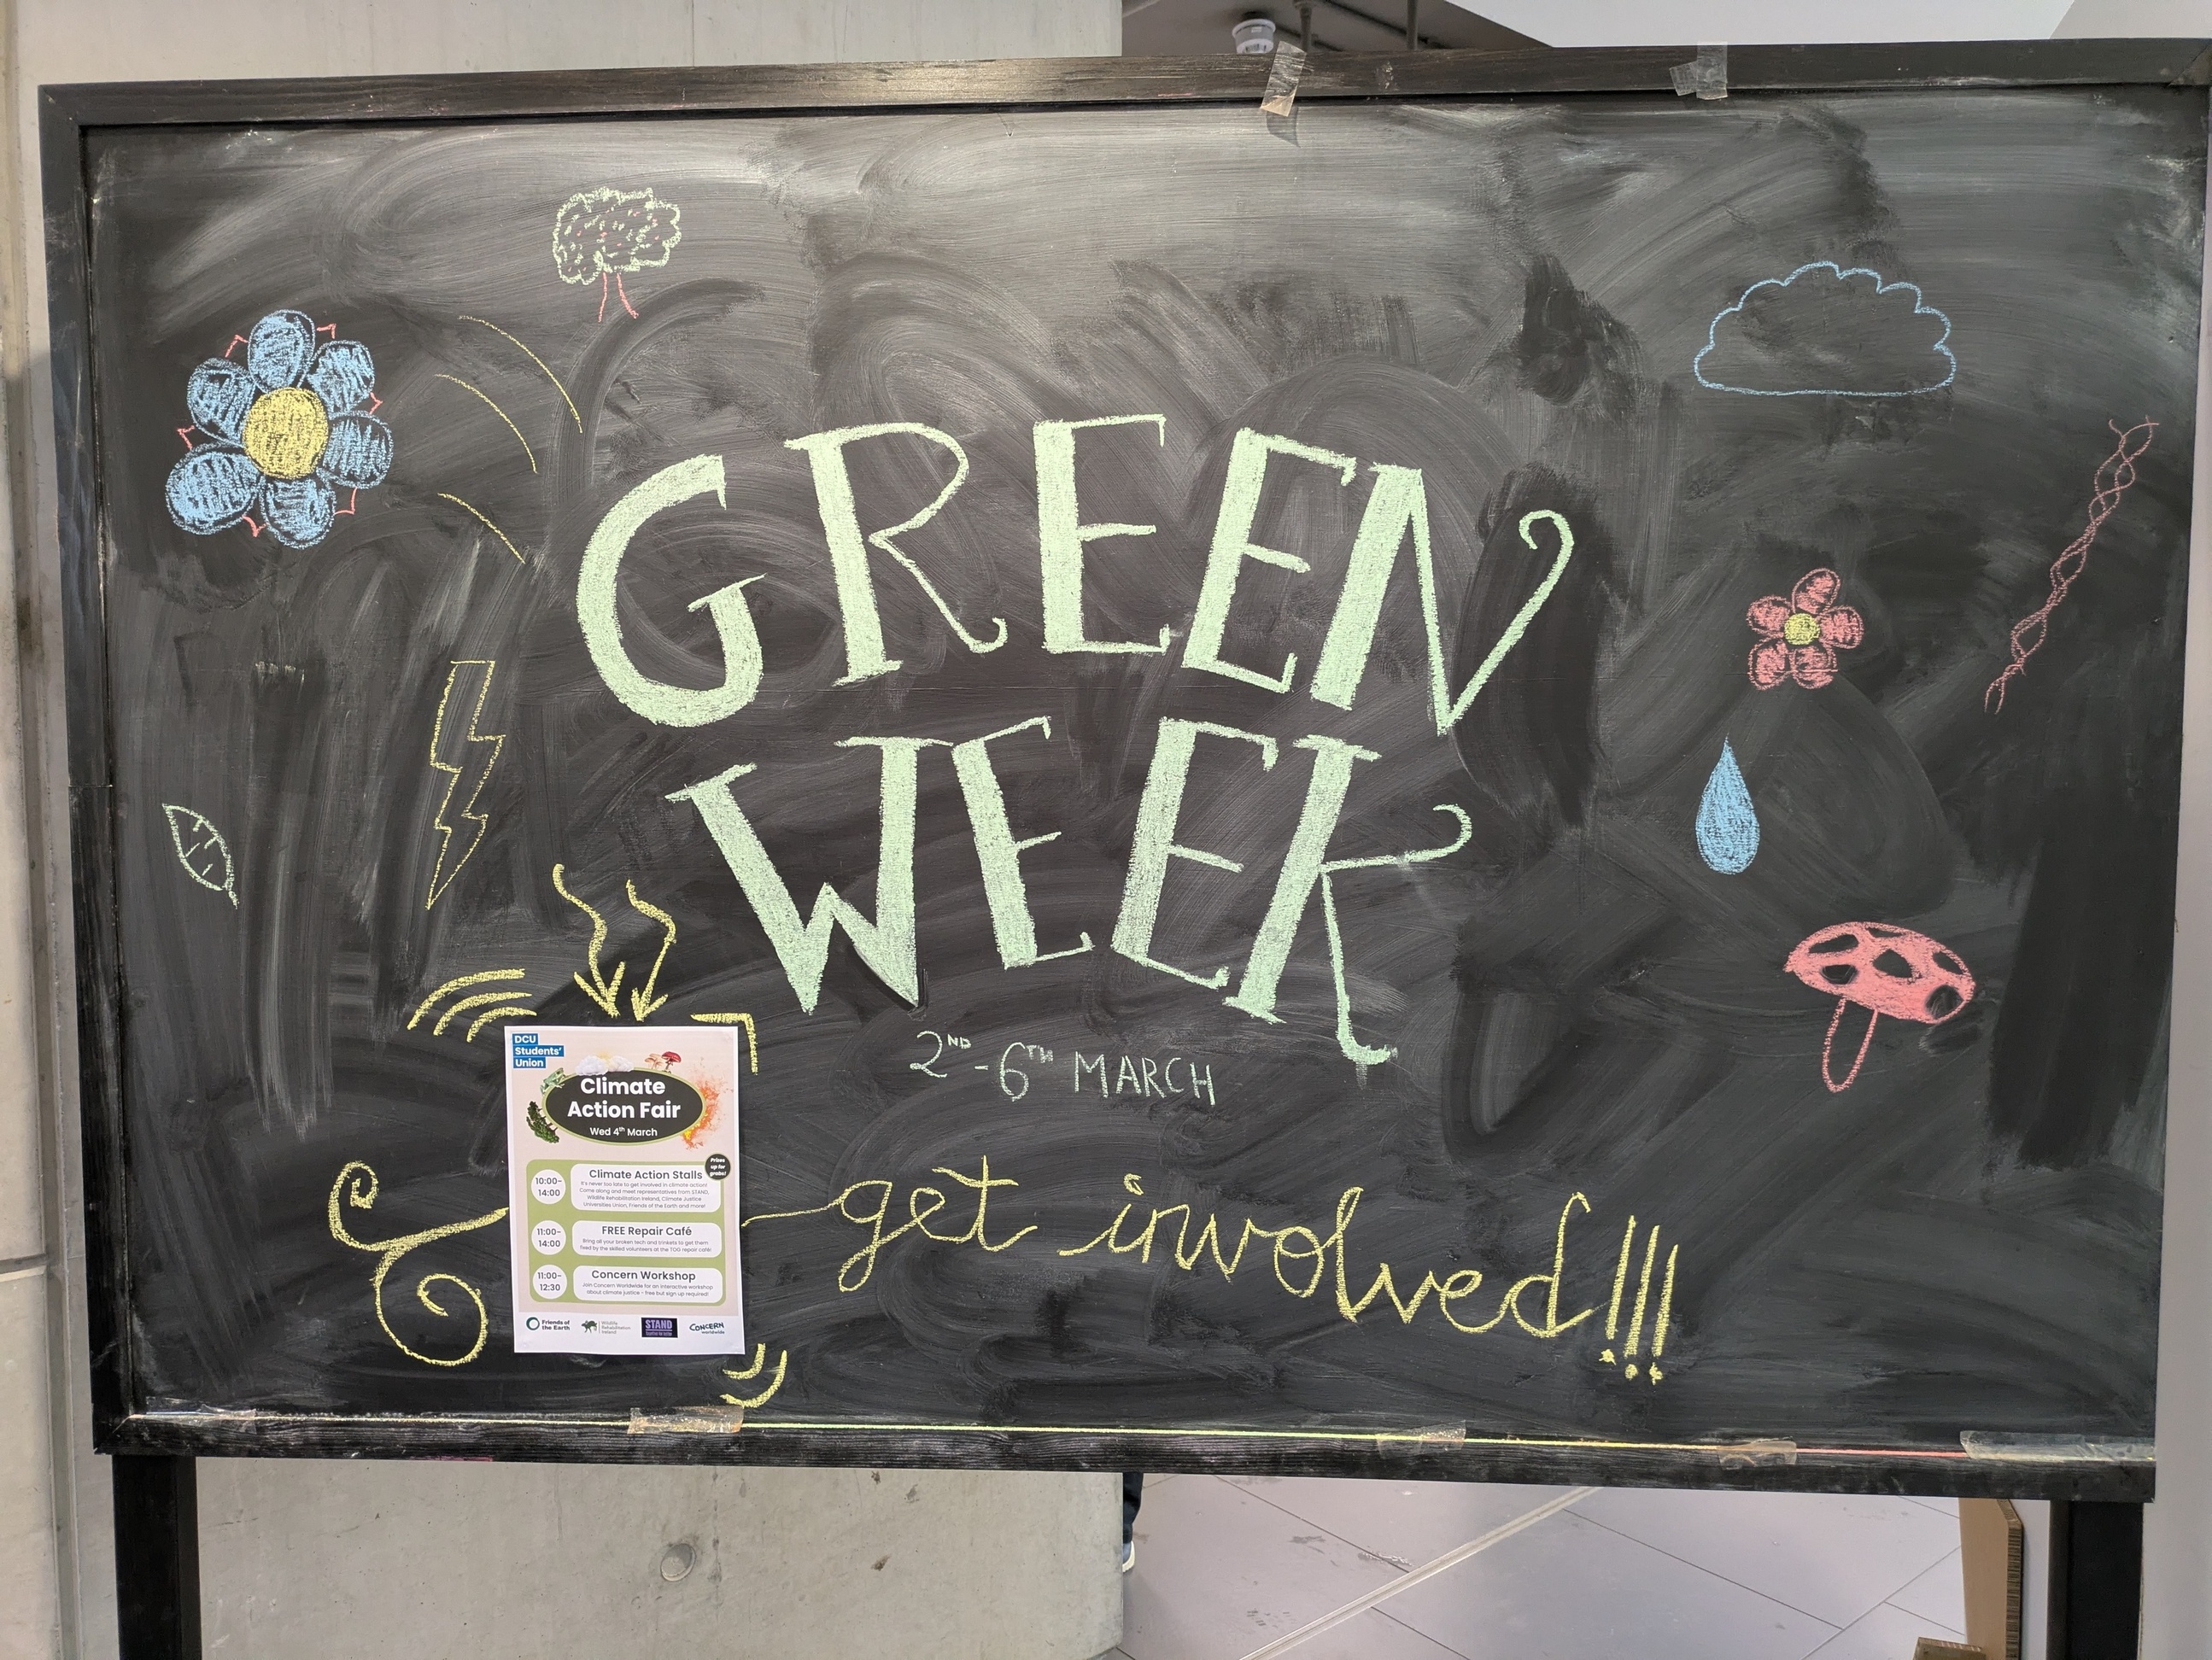 GREEN
WEEK
2ND - 6TH MARCH
get involved!!!
DCU
Students'
Union
Climate
Action Fair
Wed 4th March
Prizes
up for
grabs!
10:00-
14:00
Climate Action Stalls
It's never too late to get involved in climate action!
Come along and meet representatives from STAND,
Wildlife Rehabilitation Ireland, Climate Justice
Universities Union, Friends of the Earth and more!
11:00-
14:00
FREE Repair Café
Bring all your broken tech and trinkets to get them
fixed by the skilled volunteers at the TOG repair café!
11:00-
12:30
Concern Workshop
Join Concern Worldwide for an interactive workshop
about climate justice - free but sign up required!
Friends of
the Earth
Wildlife
Rehabilitation
Ireland
STAND
CONCERN
worldwide